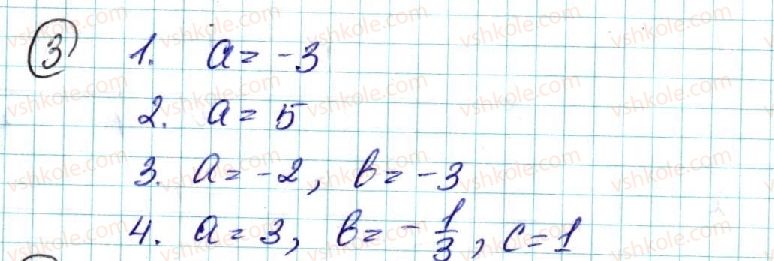 ③ 1. a = -3
2. a = 5
3. a = -2, b = -3
4. a = 3, b = -1/3, c = 1